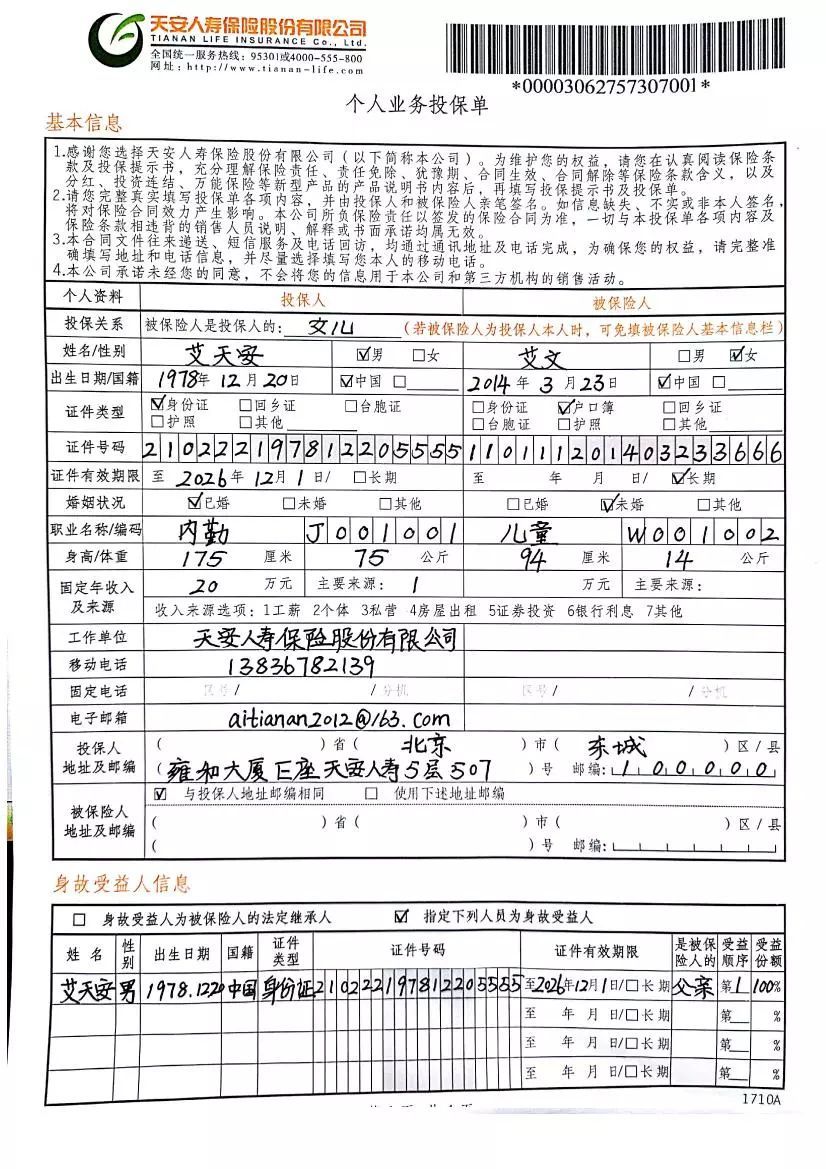 天安人寿保险股份有限公司
TIANAN LIFE INSURANCE Co., Ltd.
全国统一服务热线：95301或4000-555-800
网址：http://www.tianan-life.com
*00003062757307001*
个人业务投保单
基本信息
1.感谢您选择天安人寿保险股份有限公司（以下简称本公司）。为维护您的权益，请您在认真阅读保险条
款及投保提示书，充分理解保险责任、责任免除、犹豫期、合同生效、合同解除等保险条款含义，以及
分红、投资连结、万能保险等新型产品的产品说明书内容后，再填写投保提示书及投保单。
2.请您完整真实填写投保单各项内容，并由投保人和被保险人亲笔签名。如信息缺失、不实或非本人签名，
将对保险合同效力产生影响。本公司所负保险责任以签发的保险合同为准，一切与本投保单各项内容及
保险条款相违背的销售人员说明、解释或书面承诺均属无效。
3.本合同文件往来递送、短信服务及电话回访，均通过通讯地址及电话完成，为确保您的权益，请完整准
确填写地址和电话信息，并尽量选择填写您本人的移动电话。
4.本公司承诺未经您的同意，不会将您的信息用于本公司和第三方机构的销售活动。
个人资料 投保人 被保险人
投保关系 被保险人是投保人的：女儿 （若被保险人为投保人本人时，可免填被保险人基本信息栏）
姓名/性别 艾天安 ☑男 □女 艾文 □男 ☑女
出生日期/国籍 1978年 12月 20日 ☑中国 □ 2014年 3月 23日 ☑中国 □
证件类型 ☑身份证 □回乡证 □台胞证 □身份证 ☑户口簿 □回乡证
□护照 □其他 □台胞证 □护照 □其他
证件号码 210222197812205555 110111201403233666
证件有效期限 至 2026年 12月 1日/ □长期 至 年 月 日/ ☑长期
婚姻状况 ☑已婚 □未婚 □其他 □已婚 ☑未婚 □其他
职业名称/编码 内勤 J001001 儿童 W001002
身高/体重 175 厘米 75 公斤 94 厘米 14 公斤
固定年收入及来源 20 万元 主要来源：1 万元 主要来源：
收入来源选项：1工薪 2个体 3私营 4房屋出租 5证券投资 6银行利息 7其他
工作单位 天安人寿保险股份有限公司
移动电话 13836782139
固定电话 区号/ /分机 区号/ /分机
电子邮箱 aitianan2012@163.com
投保人地址及邮编 （ ）省（ 北京 ）市（ 东城 ）区/县
（雍和大厦E座天安人寿5层507 ）号 邮编：100000
被保险人地址及邮编 ☑ 与投保人地址邮编相同 □ 使用下述地址邮编
（ ）省（ ）市（ ）区/县
（ ）号 邮编：
身故受益人信息
□ 身故受益人为被保险人的法定继承人 ☑ 指定下列人员为身故受益人
姓名 性别 出生日期 国籍 证件类型 证件号码 证件有效期限 是被保险人的 受益顺序 受益份额
艾天安 男 1978.1220 中国 身份证 210222197812205555 至2026年12月1日/□长期 父亲 第1 100%
至 年 月 日/□长期 第 %
至 年 月 日/□长期 第 %
至 年 月 日/□长期 第 %
1710A